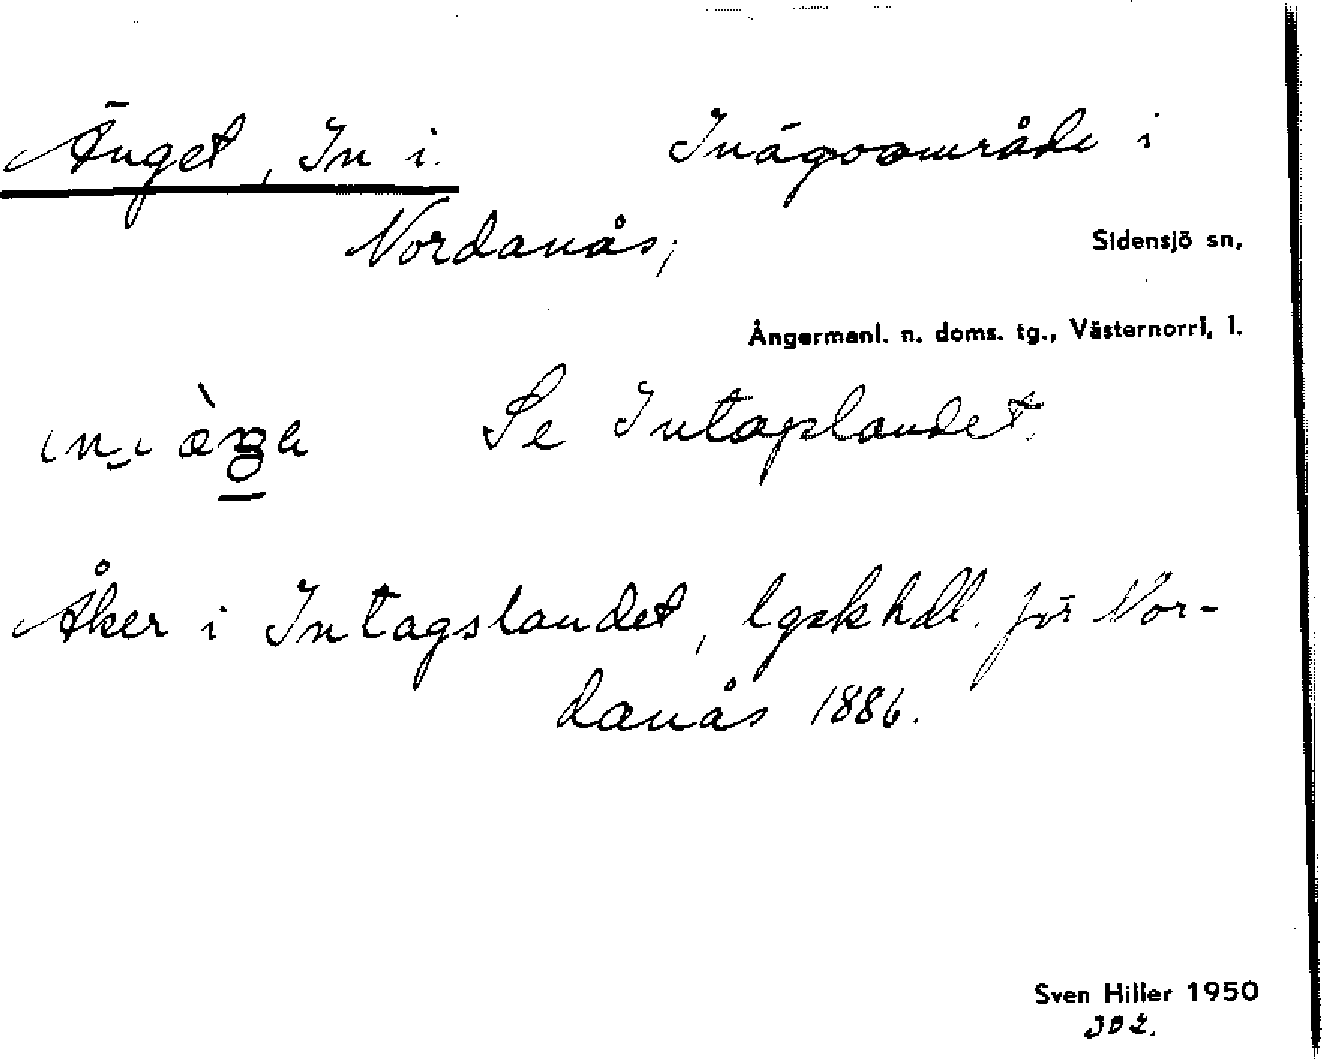 Änget, In i. Inägoområde i
Nordanås, Sidensjö sn,
Ångermanl. n. doms. tg., Västernorrl. l.
Se Intagslandet.
Åker i Intagslandet, lgskhdl. för Nor-
danås 1886.
Sven Hiller 1950